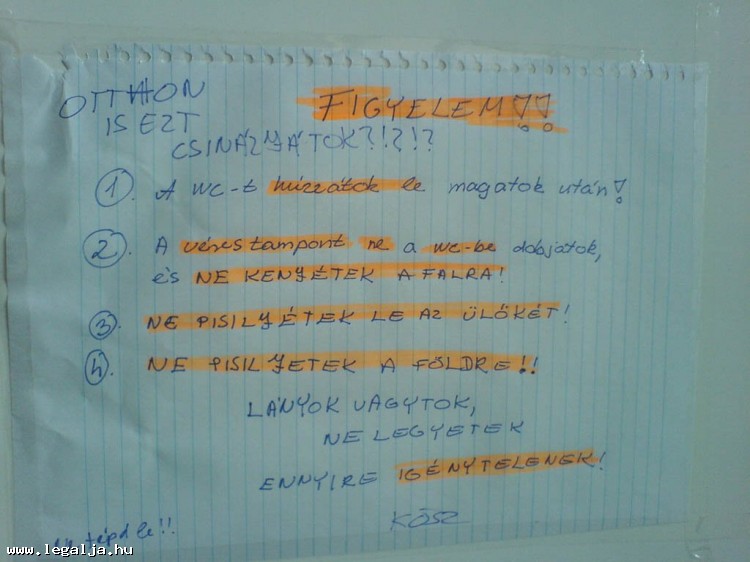 OTTHON
IS EZT
CSINÁLJÁTOK?!?!?
FIGYELEM!!
1. A WC-t húzzátok le magatok után!
2. A véres tampont ne a wc-be dobjátok,
és NE KENJÉTEK A FALRA!
3. NE PISILJÉTEK LE AZ ÜLŐKÉT!
4. NE PISILJETEK A FÖLDRE!!
LÁNYOK VAGYTOK,
NE LEGYETEK
ENNYIRE IGÉNYTELENEK!
KÖSZ
tépd le!!
www.legalja.hu